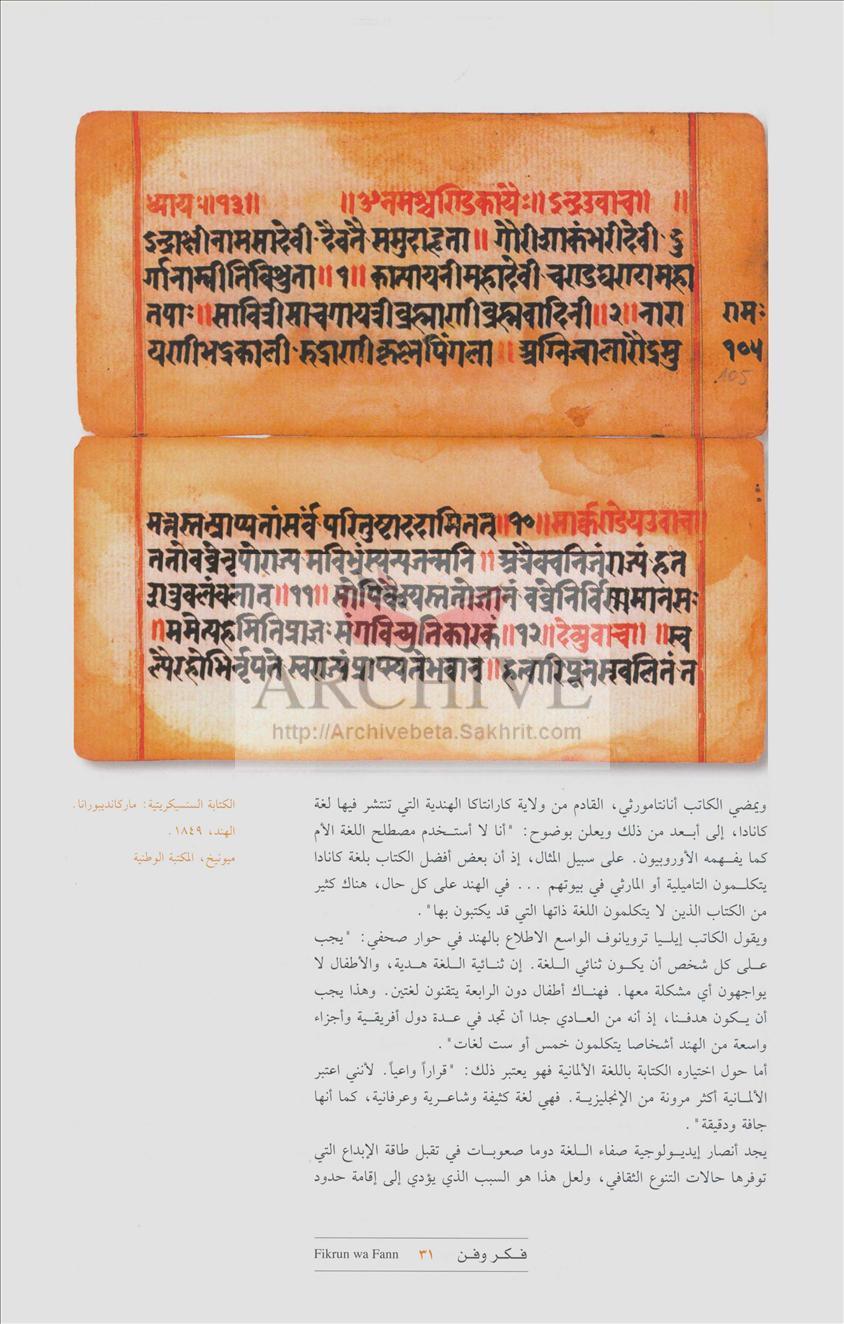 ध्यायः॥१३॥ ॥ॐनमश्चण्डिकायैः॥ॐइन्द्रउवाच॥ ॥
इन्द्राक्षीनामसादेवी दैवतैः समुदाहृता॥ गौरीशाकंभरीदेवी दु
र्गानाम्नीतिविश्रुता॥१॥ कात्यायनीमहादेवी चण्डघण्टामहा
तपाः॥सावित्रीसाचगायत्रीब्रह्माणीब्रह्मवादिनी॥२॥नारा
राम
यणीभद्रकाली रुद्राणीकृष्णपिंगला ॥ अग्निज्वालारौद्रमु
१०५
105
मत्तस्तत्प्राप्यतांसर्वं परितुष्टाददामितत्॥१०॥मार्कण्डेयउवाच॥
ततोवव्रेनृपोराज्य मविभ्रंश्यन्यजन्मनि॥ अत्रैवचनिजंराज्यं हत
शत्रुबलंबलात्॥११॥ सोपिवैश्यस्ततोज्ञानं वव्रेनिर्विण्णमानसः
॥ममेत्यहमितिप्राज्ञः संगविच्युतिकारकं॥१२॥देव्युवाच॥ ॥स्व
ल्पैरहोभिर्नृपते स्वराज्यंप्राप्स्यतेभवान्॥हत्वारिपून्स्खलितं त
ARCHIVE
http://Archivebeta.Sakhrit.com
الكتابة السنسيكريتية: ماركانديبورانا.
الهند، ١٨٤٩.
ميونيخ، المكتبة الوطنية
ويمضي الكاتب أنانتامورثي، القادم من ولاية كارانتاكا الهندية التي تنتشر فيها لغة
كانادا، إلى أبعد من ذلك ويعلن بوضوح: "أنا لا أستخدم مصطلح اللغة الأم
كما يفهمه الأوروبيون. على سبيل المثال، إذ أن بعض أفضل الكتاب بلغة كانادا
يتكلمون التاميلية أو المارثي في بيوتهم ... في الهند على كل حال، هناك كثير
من الكتاب الذين لا يتكلمون اللغة ذاتها التي قد يكتبون بها".
ويقول الكاتب إيليا ترويانوف الواسع الاطلاع بالهند في حوار صحفي: "يجب
على كل شخص أن يكون ثنائي اللغة. إن ثنائية اللغة هدية، والأطفال لا
يواجهون أي مشكلة معها. فهناك أطفال دون الرابعة يتقنون لغتين. وهذا يجب
أن يكون هدفنا، إذ أنه من العادي جدا أن تجد في عدة دول أفريقية وأجزاء
واسعة من الهند أشخاصا يتكلمون خمس أو ست لغات".
أما حول اختياره الكتابة باللغة الألمانية فهو يعتبر ذلك: "قراراً واعياً. لأنني اعتبر
الألمانية أكثر مرونة من الإنجليزية. فهي لغة كثيفة وشاعرية وعرفانية، كما أنها
جافة ودقيقة".
يجد أنصار إيديولوجية صفاء اللغة دوما صعوبات في تقبل طاقة الإبداع التي
توفرها حالات التنوع الثقافي، ولعل هذا هو السبب الذي يؤدي إلى إقامة حدود
فكر وفن ٣١ Fikrun wa Fann